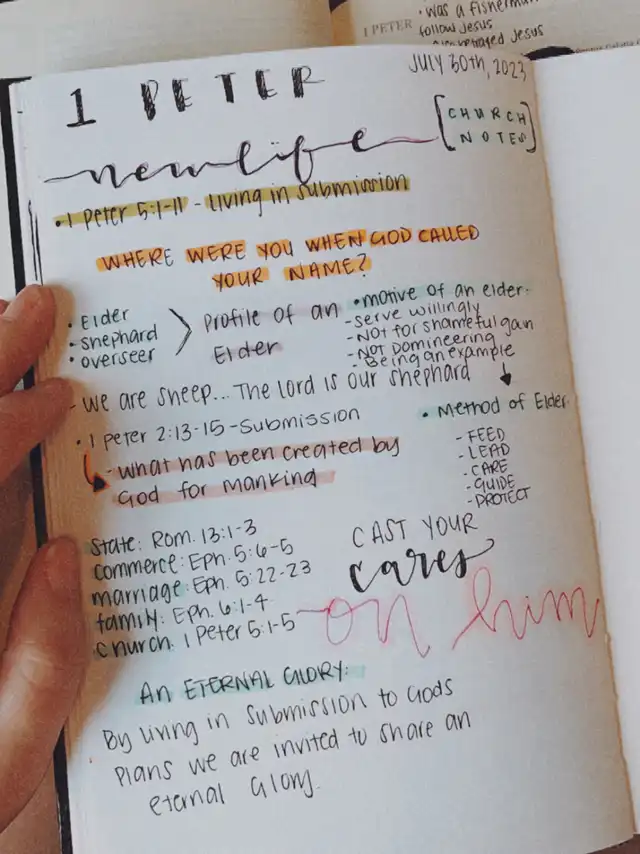 • was a fisherman
1 PETER
follow Jesus
Jesus
JULY 30th, 2023
1 PETER
[CHURCH
NOTES]
new life
• 1 Peter 5:1-11 - Living in Submission
WHERE WERE YOU WHEN GOD CALLED
YOUR NAME?
• Elder
• shephard
• overseer
Profile of an
Elder
• motive of an elder:
- serve willingly
- Not for shameful gain
- NOT Domineering
- Being an example
- we are sheep... The lord is our shephard
• 1 Peter 2:13-15 - Submission
- what has been created by
God for Manking
• Method of Elder
- FEED
- LEAD
- CARE
- GUIDE
- PROTECT
state: Rom. 13:1-3
commerce: Eph. 5:6-5
marriage: Eph. 5:22-23
family: Eph. 6:1-4
church: 1 Peter 5:1-5
CAST YOUR
cares
on him
An ETERNAL GLORY:
By living in submission to Gods
plans we are invited to share an
eternal Glory.